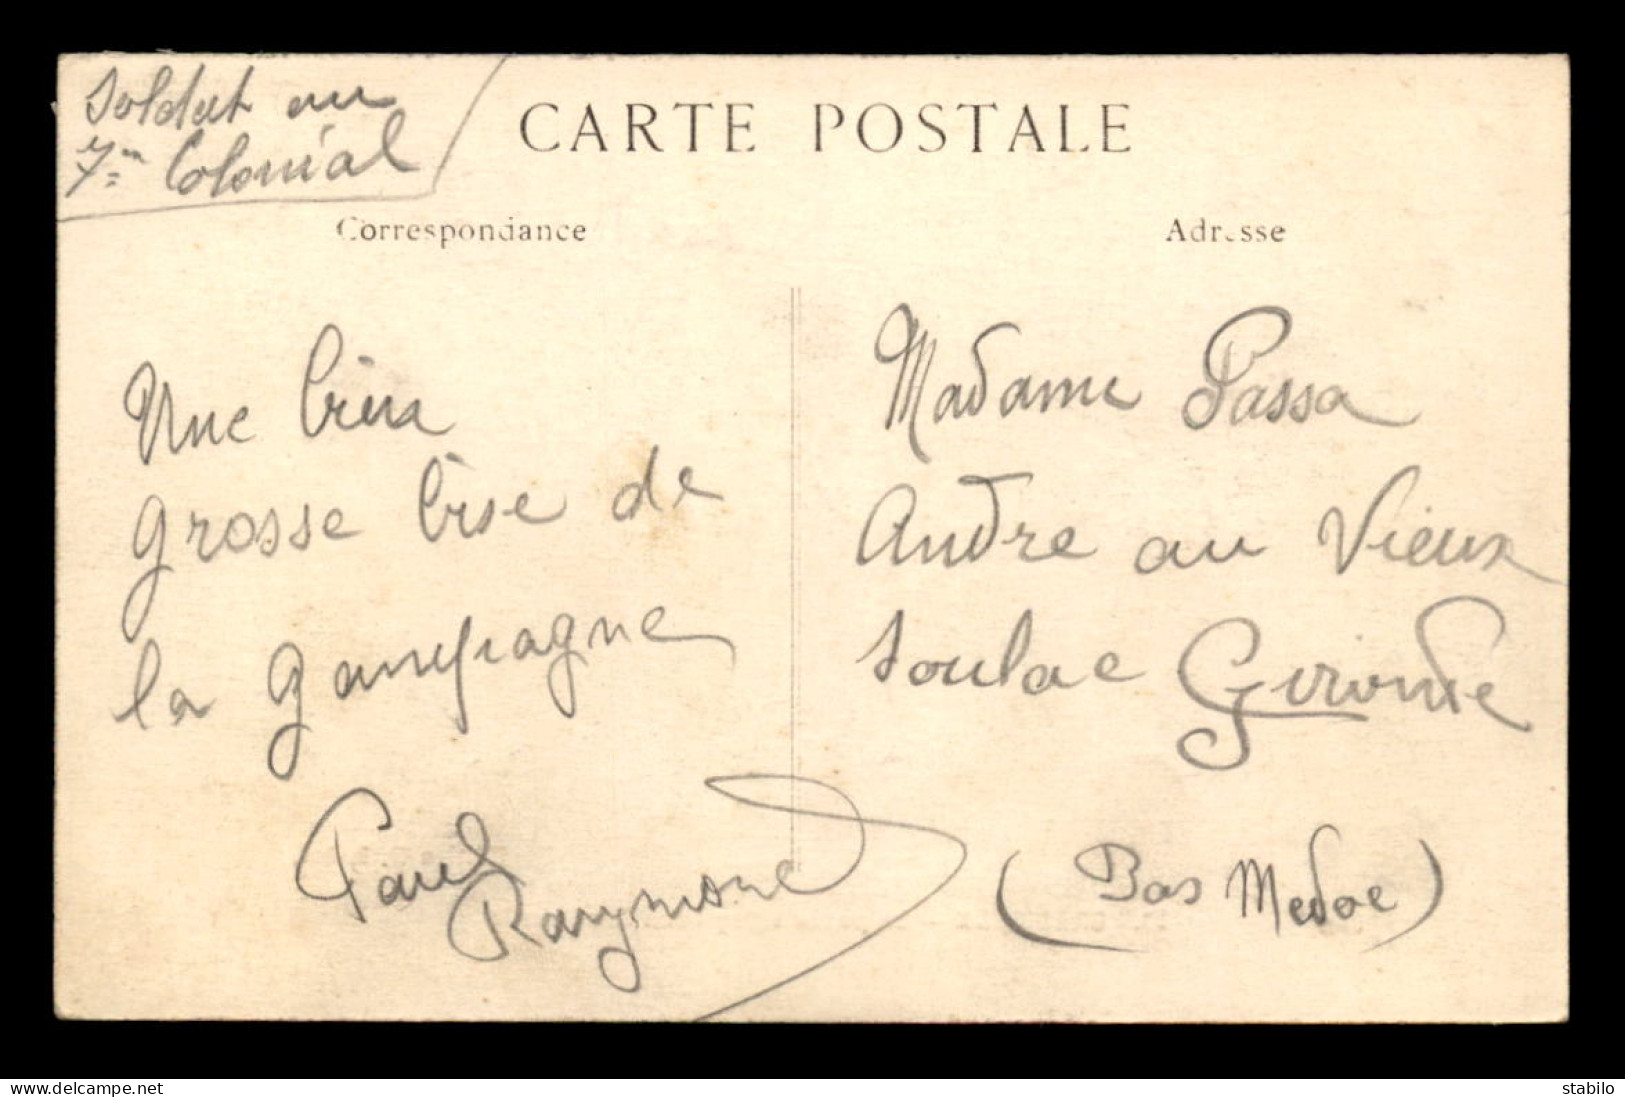 Soldat au
7me Colonial
CARTE POSTALE
Correspondance
Adresse
Une bien
grosse bise de
la gampagne
Paul
Raymond
Madame Passa
Andre au Vieux
Soulac Gironde
(Bas Medoc)
www.delcampe.net
stabilo